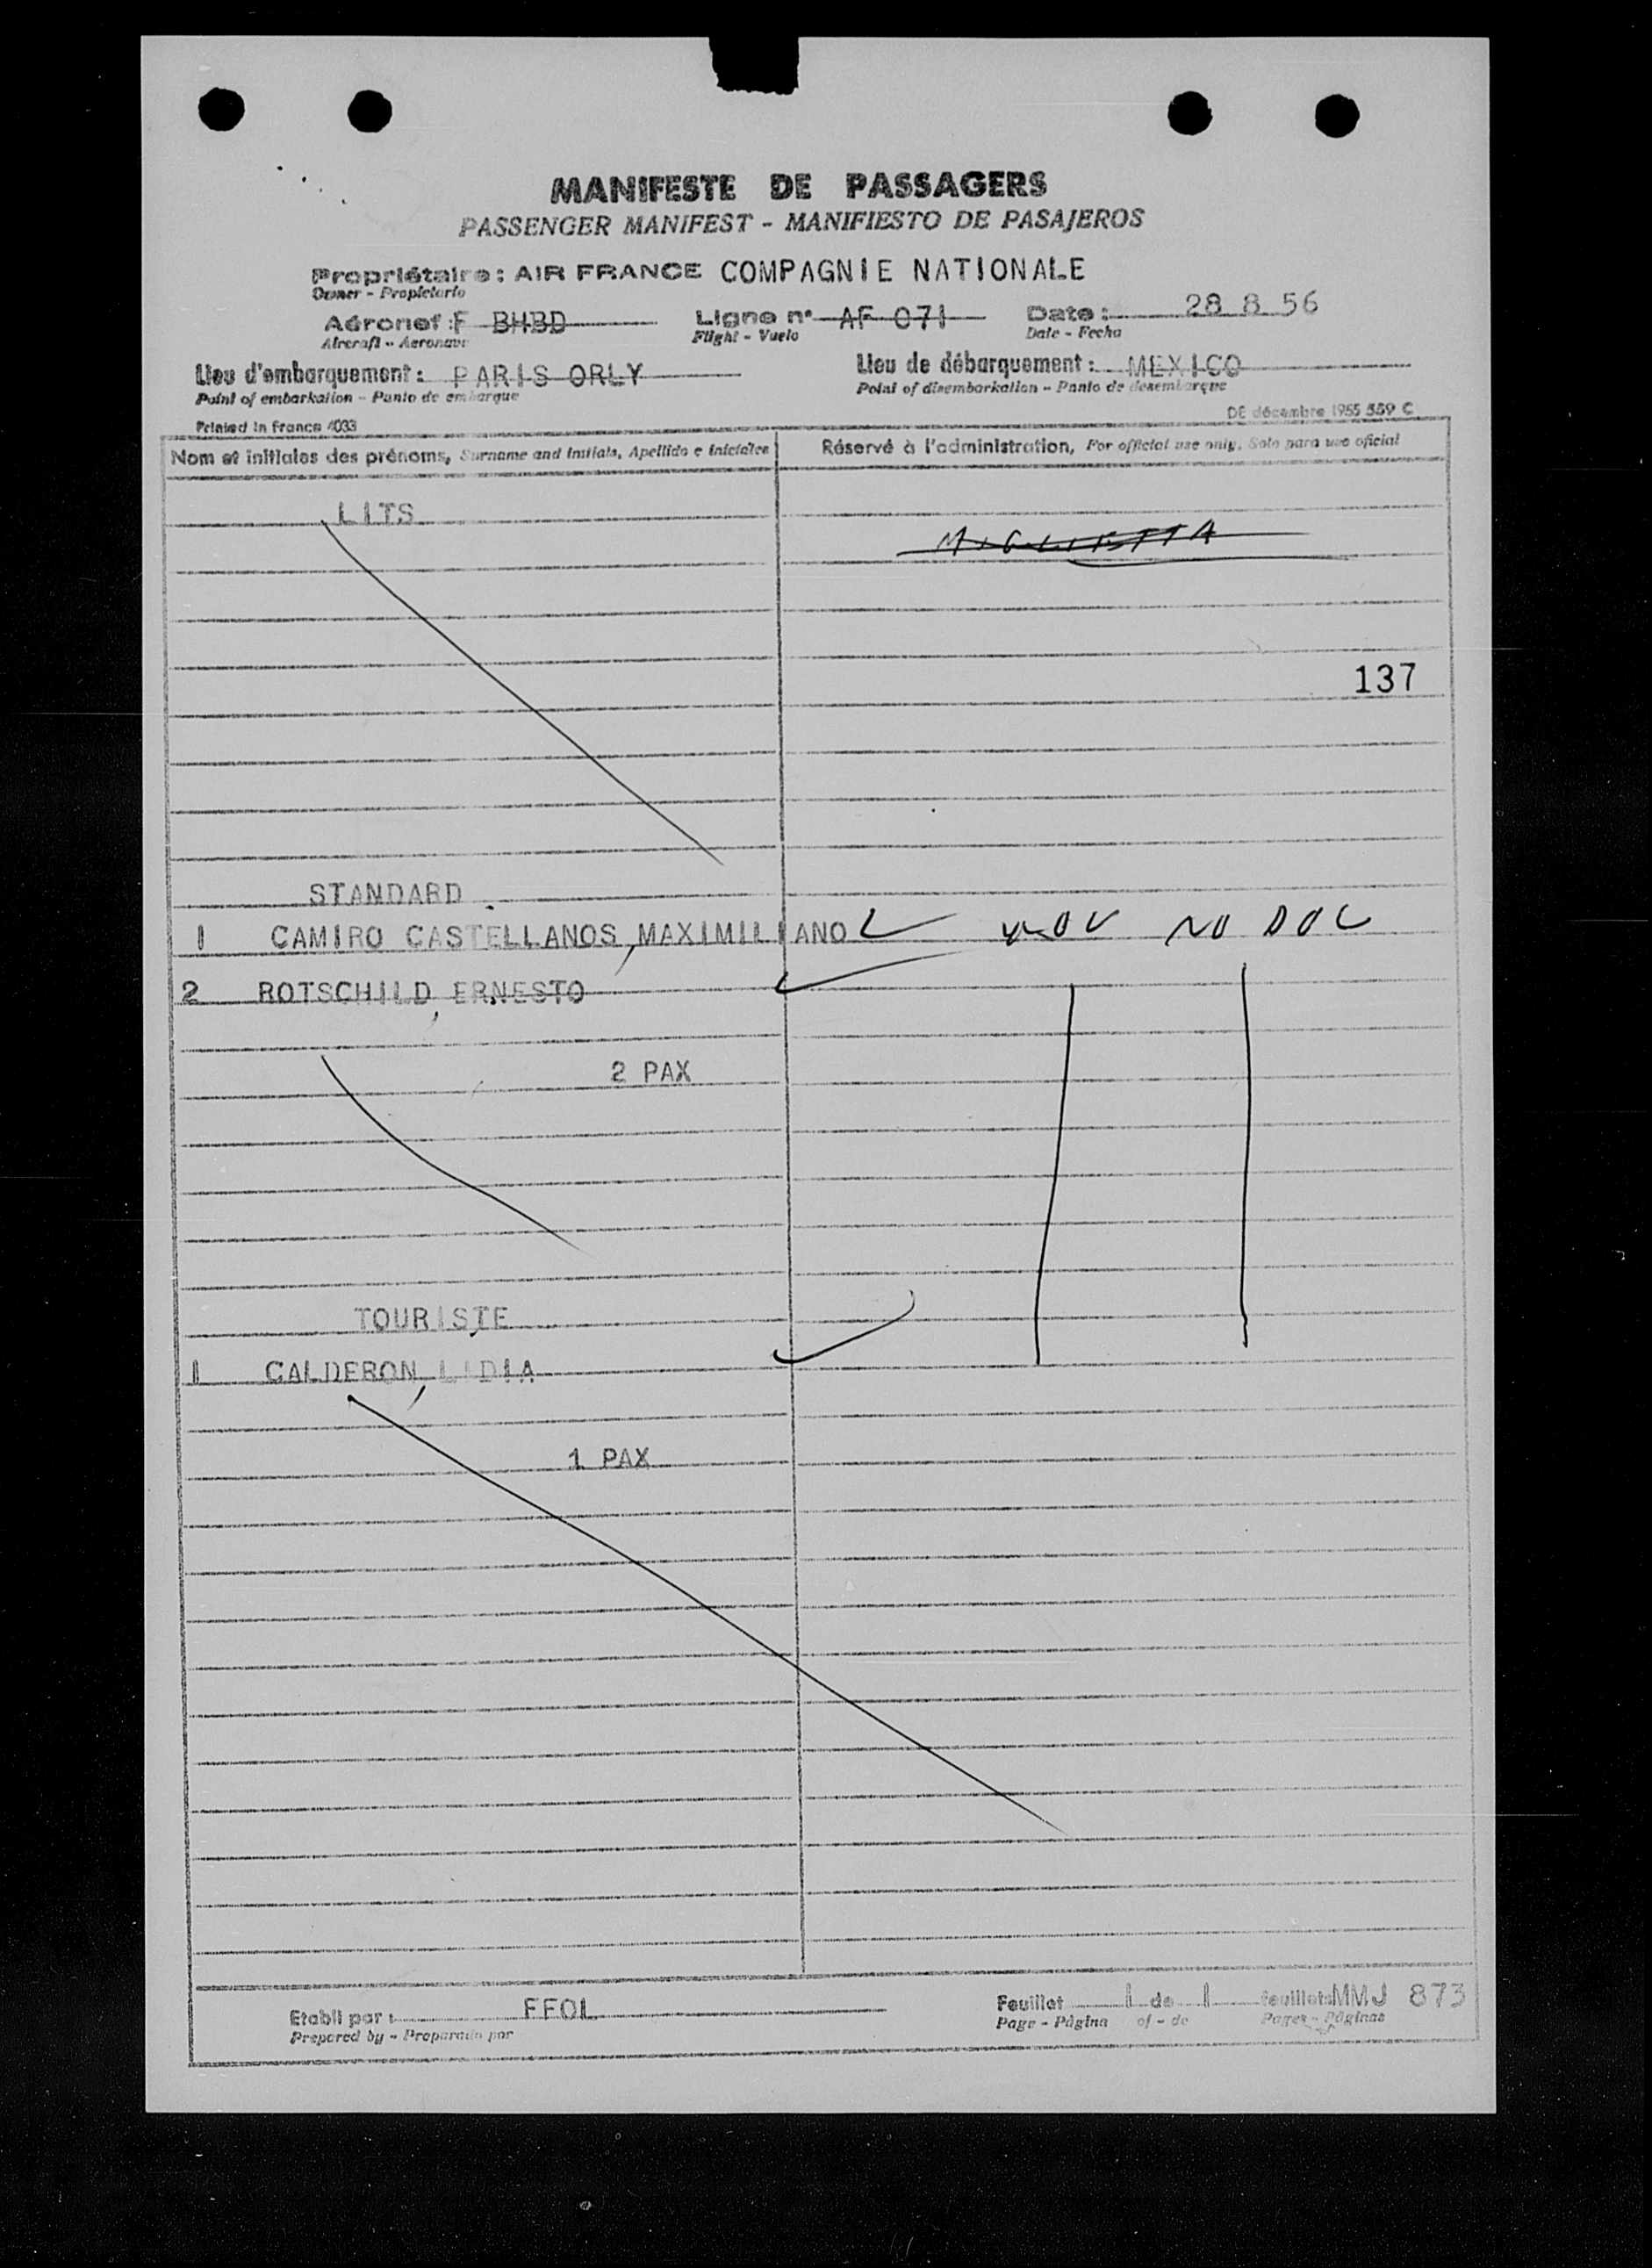 MANIFESTE DE PASSAGERS
PASSENGER MANIFEST - MANIFIESTO DE PASAJEROS
Propriétaire : AIR FRANCE COMPAGNIE NATIONALE
Owner - Propietario
Aéronef : F BHBD Ligne n° AF 071 Date : 28 8 56
Aircraft - Aeronave Flight - Vuelo Date - Fecha
Lieu d'embarquement : PARIS ORLY Lieu de débarquement : MEXICO
Point of embarkation - Punto de embarque Point of disembarkation - Punto de desembarque
Printed in France 4033 DE décembre 1955 559 C
Nom et initiales des prénoms, Surname and initials, Apellido e iniciales Réservé à l'administration, For official use only, Solo para uso oficial
LITS
137
STANDARD
1 CAMIRO CASTELLANOS, MAXIMILIANO NO DOC
2 ROTSCHILD, ERNESTO
2 PAX
TOURISTE
1 CALDERON, LIDIA
1 PAX
Etabli par : FFOL Feuillet 1 de 1 feuillets MMJ 873
Prepared by - Preparado por Page - Página of - de Pages - Páginas